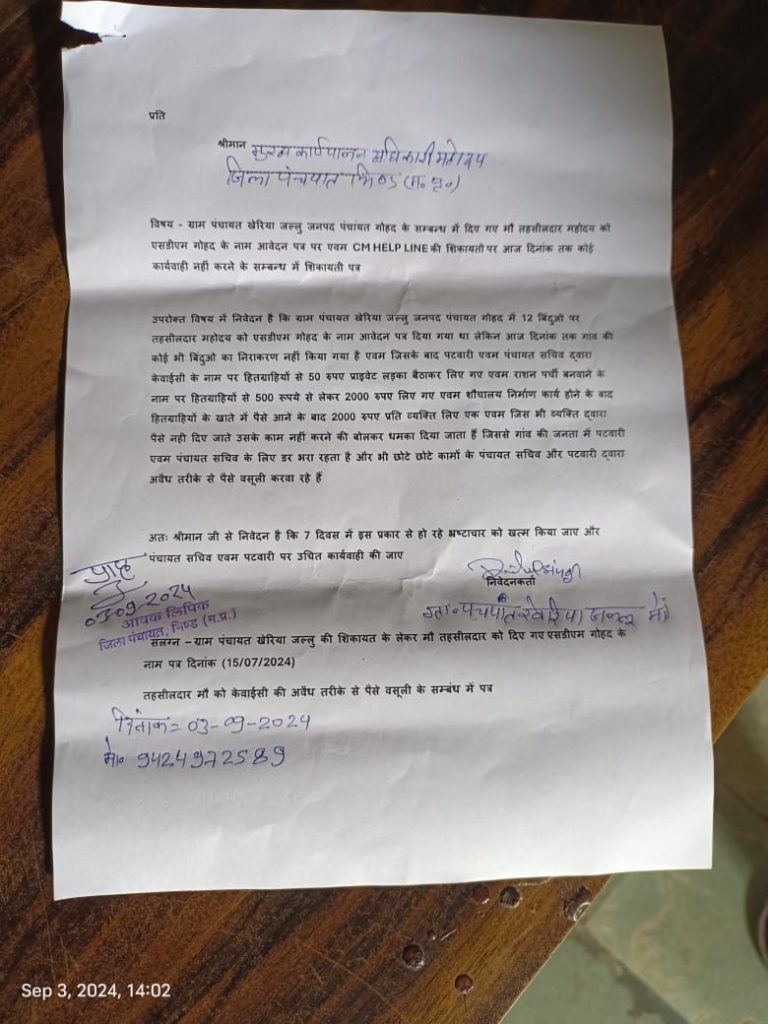 प्रति
श्रीमान मुख्य कार्यपालन अधिकारी महोदय
जिला पंचयात भिण्ड (म. प्र.)
विषय - ग्राम पंचायत खेरिया जल्लु जनपद पंचांयत गोहद के सम्बन्ध में दिए गए मौ तहसीलदार महोदय को
एसडीएम गोहद के नाम आवेदन पत्र पर एवम CM HELP LINE की शिकायतो पर आज दिनांक तक कोई
कार्यवाही नहीं करने के सम्बन्ध में शिकायती पत्र
उपरोक्त विषय में निवेदन है कि ग्राम पंचायत खेरिया जल्लु जनपद पंचायत गोहद में 12 बिंदुओ पर
तहसीलदार महोदय को एसडीएम गोहद के नाम आवेदन पत्र दिया गया था लेकिन आज दिनांक तक गांव की
कोई भी बिंदुओ का निराकरण नहीं किया गया है एवम जिसके बाद पटवारी एवम पंचायत सचिव द्वारा
केवाईसी के नाम पर हितग्राहियों से 50 रुपए प्राइवेट लड़का बैठाकर लिए गए एवम राशन पर्ची बनवाने के
नाम पर हितग्राहियों से 500 रूपये से लेकर 2000 रुपए लिए गए एवम शौचालय निर्माण कार्य होने के बाद
हितग्राहियों के खाते में पैसे आने के बाद 2000 रुपए प्रति व्यक्ति लिए एक एवम जिस भी व्यक्ति द्वारा
पैसे नही दिए जाते उसके काम नहीं करने की बोलकर धमका दिया जाता हैं जिससे गांव की जनता में पटवारी
एवम पंचायत सचिव के लिए डर भरा रहता है और भी छोटे छोटे कामों के पंचायत सचिव और पटवारी द्वारा
अवैध तरीके से पैसे वसूली करवा रहे हैं
अतः श्रीमान जी से निवेदन है कि 7 दिवस में इस प्रकार से हो रहे भ्रष्टाचार को खत्म किया जाए और
पंचायत सचिव एवम पटवारी पर उचित कार्यवाही की जाए
प्राप्त
03-09-2024
आवक लिपिक
जिला पंचायत, भिण्ड (म.प्र.)
निवेदनकर्ता
पंचयात खेरिया जल्लू मौ
संलग्न –ग्राम पंचायत खेरिया जल्लु की शिकायत के लेकर मौ तहसीलदार को दिए गए एसडीएम गोहद के
नाम पत्र दिनांक (15/07/2024)
तहसीलदार मौ को केवाईसी की अवैध तरीके से पैसे वसूली के सम्बंध में पत्र
दिनांक= 03-09-2024
मो० 9424972589
Sep 3, 2024, 14:02